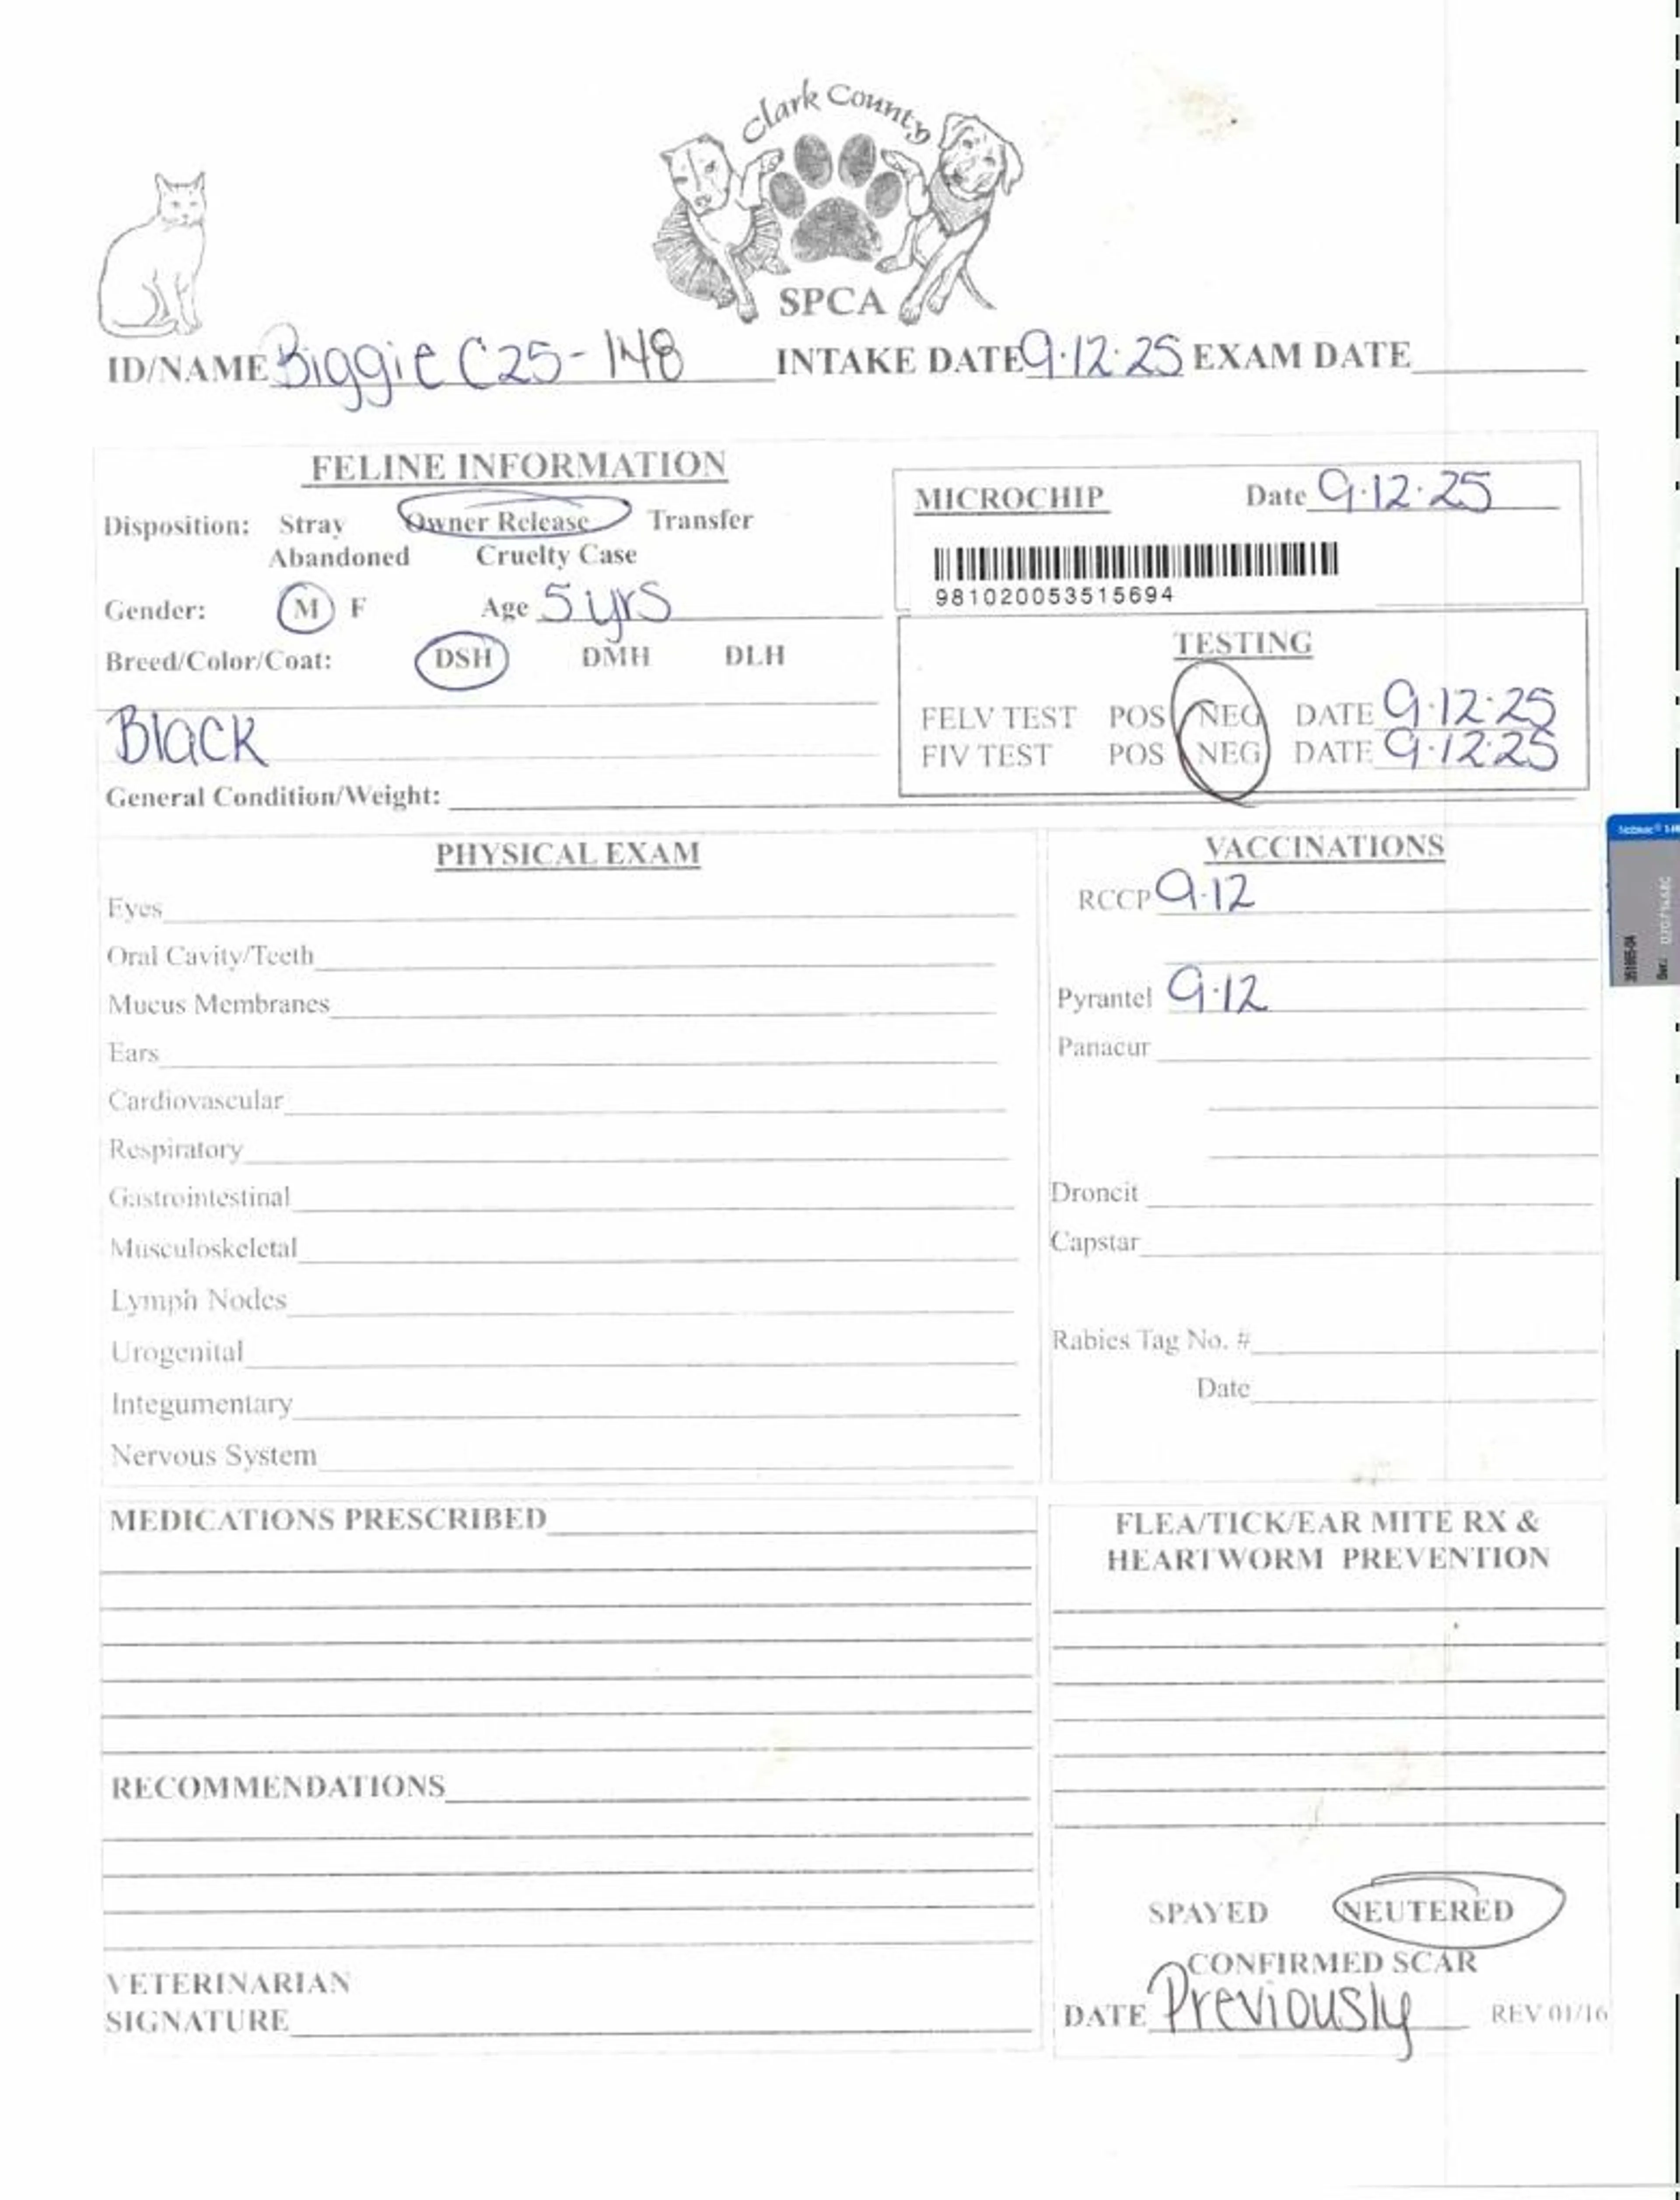 Clark County
SPCA
ID/NAME Biggie C25-148 INTAKE DATE 9·12·25 EXAM DATE
FELINE INFORMATION
Disposition: Stray Owner Release Transfer
Abandoned Cruelty Case
Gender: M F Age 5 yrs
Breed/Color/Coat: DSH DMH DLH
Black
General Condition/Weight:
MICROCHIP Date 9·12·25
981020053515694
TESTING
FELV TEST POS NEG DATE 9·12·25
FIV TEST POS NEG DATE 9·12·25
PHYSICAL EXAM
Eyes
Oral Cavity/Teeth
Mucus Membranes
Ears
Cardiovascular
Respiratory
Gastrointestinal
Musculoskeletal
Lymph Nodes
Urogenital
Integumentary
Nervous System
VACCINATIONS
RCCP 9·12
Pyrantel 9·12
Panacur
Droncit
Capstar
Rabies Tag No. #
Date
MEDICATIONS PRESCRIBED
RECOMMENDATIONS
VETERINARIAN
SIGNATURE
FLEA/TICK/EAR MITE RX &
HEARTWORM PREVENTION
SPAYED NEUTERED
CONFIRMED SCAR
DATE Previously REV 01/16